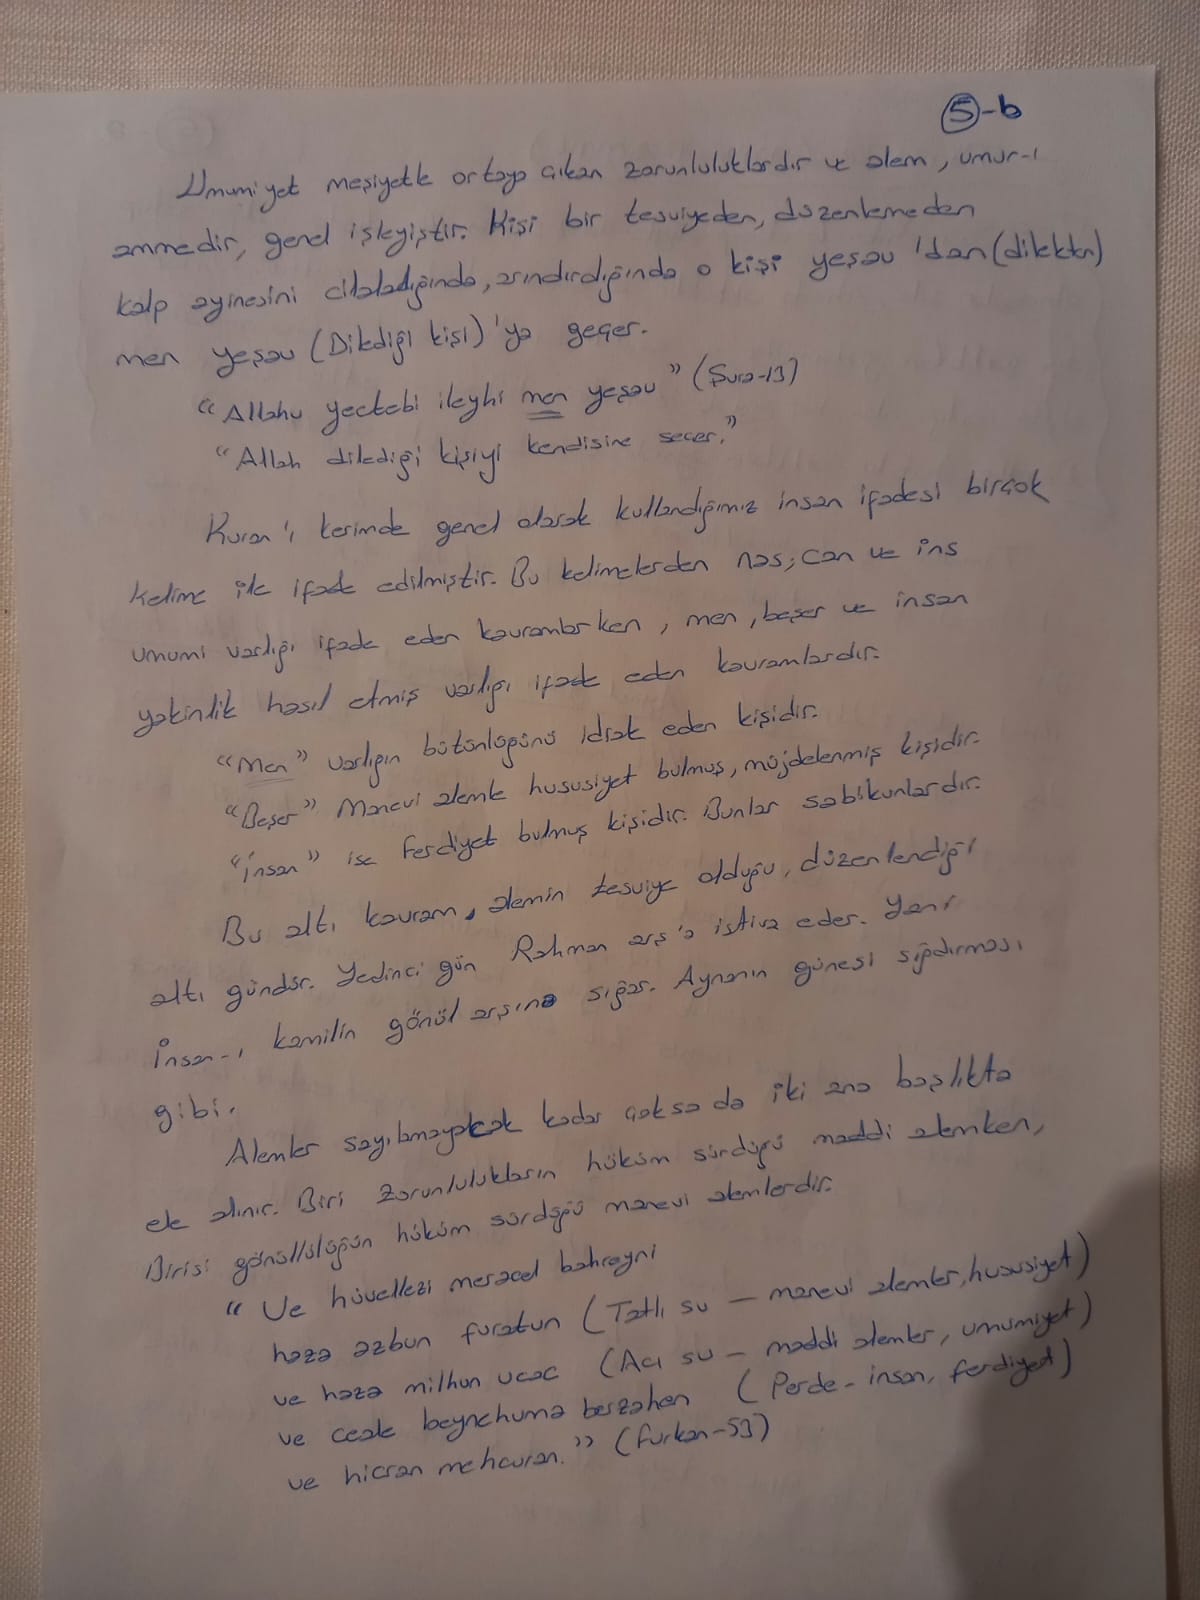 5-b
Umumiyet meşiyetle ortaya çıkan zorunluluklardır ve alem, umur-ı
ammedir, genel işleyiştir. Kişi bir tesviyeden, düzenlemeden
kalp aynesini cilaladığında, arındırdığında o kişi yeşau'dan (dilekten)
men yeşau (Dilediği kişi)'ya geçer.
"Allahu yectebi ileyhi men yeşau" (Şura-13)
"Allah dilediği kişiyi kendisine seçer."
Kuran'ı kerimde genel olarak kullandığımız insan ifadesi birçok
kelime ile ifade edilmiştir. Bu kelimelerden nas, can ve ins
umumi varlığı ifade eden kavramlarken, men, beşer ve insan
yakinlik hasıl etmiş varlığı ifade eden kavramlardır.
"Men" varlığın bütünlüğünü idrak eden kişidir.
"Beşer" Manevi alemle hususiyet bulmuş, müjdelenmiş kişidir.
"İnsan" ise ferdiyet bulmuş kişidir. Bunlar sabikunlardır.
Bu altı kavram, alemin tesviye olduğu, düzenlendiği
altı gündür. Yedinci gün Rahman arş'a istiva eder. Yani
İnsan-ı kamilin gönül arşına sığar. Aynanın güneşi sığdırması
gibi.
Alemler sayılamayacak kadar çoksa da iki ana başlıkta
ele alınır. Biri zorunlulukların hüküm sürdüğü maddi alemken,
Birisi gönüllülüğün hüküm sürdüğü manevi alemlerdir.
"Ve hüvellezi meracel bahreyni
haza azbun furatun (Tatlı su – manevi alemler, hususiyet)
ve haza milhun ucac (Acı su – maddi alemler, umumiyet)
ve ceale beynehuma berzahen (Perde - insan, ferdiyet)
ve hicran mehcuran." (Furkan-53)